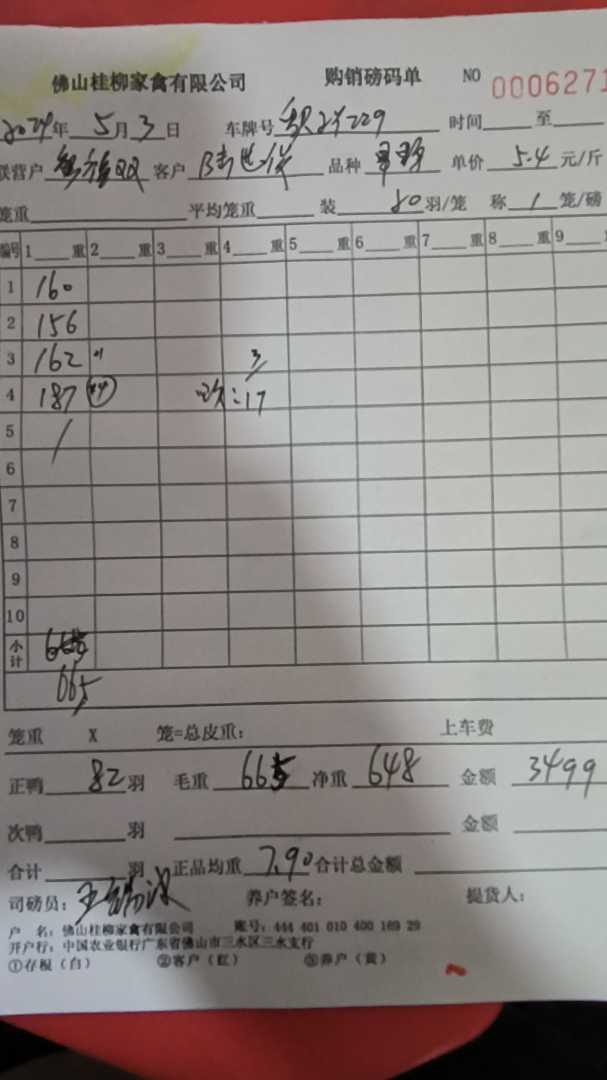 佛山桂柳家禽有限公司 购销磅码单 NO 0006271
2024年 5月3日 车牌号 229 时间 至
联营户 客户 品种 单价 5.4 元/斤
笼重 平均笼重 装 80 羽/笼 称 1 笼/磅
编号 1 重 2 重 3 重 4 重 5 重 6 重 7 重 8 重 9
1 160
2 156
3 162 3
4 187 :17
5
6
7
8
9
10
小计 665
665
笼重 X 笼=总皮重: 上车费
正鸭 82 羽 毛重 665 净重 648 金额 3499
次鸭 羽 金额
合计 羽 正品均重 7.90 合计总金额
司磅员: 王 养户签名: 提货人:
户 名: 佛山桂柳家禽有限公司 账号: 444 401 010 400 169 29
开户行: 中国农业银行广东省佛山市三水区三水支行
①存根（白） ②客户（红） ③养户（黄）